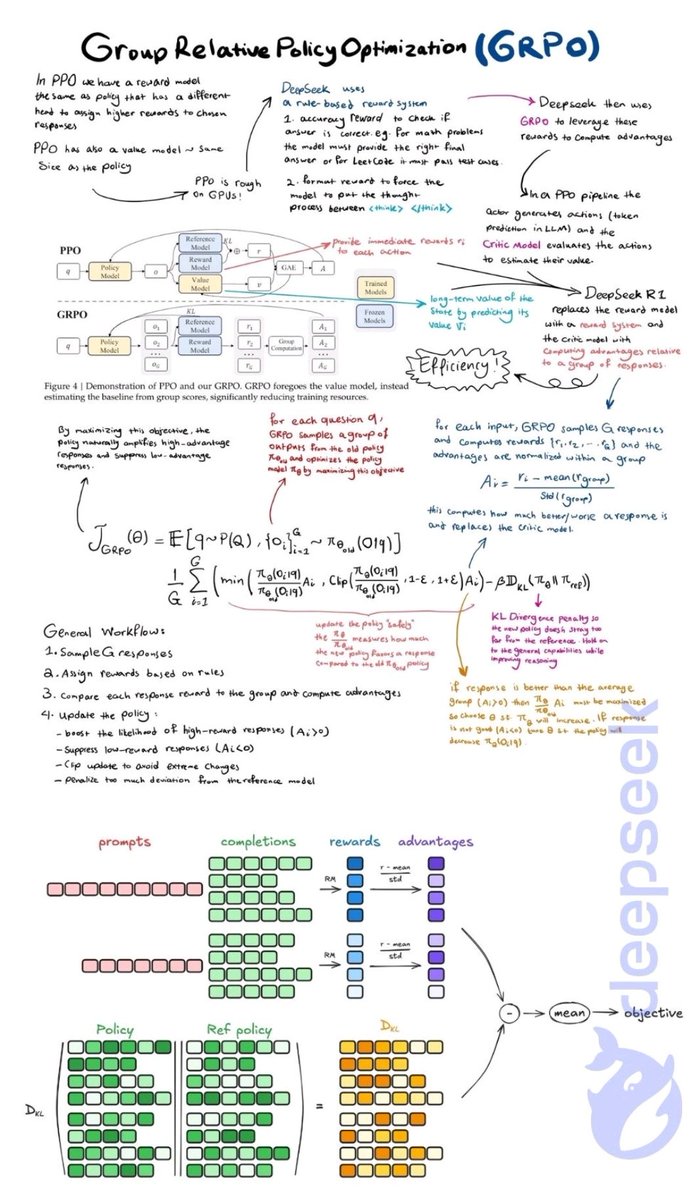 Group Relative Policy Optimization (GRPO)
In PPO we have a reward model
the same as policy that has a different
head to assign higher rewards to chosen
responses
PPO has also a value model ~ same
Size as the policy
PPO is rough
on GPUs!
DeepSeek uses
a rule-based reward system
1. accuracy reward to check if
answer is correct. e.g. for math problems
the model must provide the right final
answer or for LeetCode it must pass test cases.
2. format reward to force the
model to put the thought
process between <think> </think>
Deepseek then uses
GRPO to leverage these
rewards to compute advantages
In a PPO pipeline the
actor generates actions (token
prediction in LLM) and the
Critic Model evaluates the actions
to estimate their value.
DeepSeek R1
replaces the reward model
with a reward system and
the critic model with
computing advantages relative
to a group of responses.
Efficiency!
provide immediate rewards ri
to each action
long-term value of the
State by predicting its
value Vi
PPO
q
Policy
Model
o
Reference
Model
Reward
Model
Value
Model
KL
⊕
r
v
GAE
A
Trained
Models
Frozen
Models
GRPO
q
Policy
Model
o1
o2
...
oG
KL
Reference
Model
Reward
Model
r1
r2
...
rG
Group
Computation
A1
A2
...
AG
Figure 4 | Demonstration of PPO and our GRPO. GRPO foregoes the value model, instead
estimating the baseline from group scores, significantly reducing training resources.
By maximizing this objective, the
policy naturally amplifies high-advantage
responses and suppress low-advantage
responses.
for each question q,
GRPO samples a group of
outputs from the old policy
πθold and optimizes the policy
model πθ by maximizing this objective
for each input, GRPO samples G responses
and computes rewards {r1, r2, ... rG} and the
advantages are normalized within a group
Ai = ri - mean(rgroup) / Std(rgroup)
this computes how much better/worse a response is
and replaces the critic model.
JGRPO(θ) = E[q~P(Q), {Oi}i=1^G ~ πθold(O|q)]
1/G Σi=1^G (min(πθ(Oi|q)/πθold(Oi|q) Ai, Clip(πθ(Oi|q)/πθold(Oi|q), 1-ε, 1+ε)Ai) - βDKL(πθ || πref))
update the policy "safely"
the πθ/πθold measures how much
the new policy favors a response
compared to the old πθold policy
KL Divergence penalty so
the new policy doesn't stray too
far from the reference. Hold on
to the general capabilities while
improving reasoning
if response is better than the average
group (Ai>0) then πθ/πθold Ai must be maximized
so choose θ st. πθ will increase. If response
is not good (Ai<0) tune θ st. the policy will
decrease πθ(Oi|q)
General Workflow:
1. Sample G responses
2. Assign rewards based on rules
3. Compare each response reward to the group and compute advantages
4. Update the policy:
- boost the likelihood of high-reward responses (Ai>0)
- Suppress low-reward responses (Ai<0)
- Clip update to avoid extreme changes
- Penalize too much deviation from the reference model
prompts
completions
rewards
advantages
RM
r - mean
std
RM
r - mean
std
Policy
Ref policy
DKL
DKL
=
-
mean
objective
deepseek